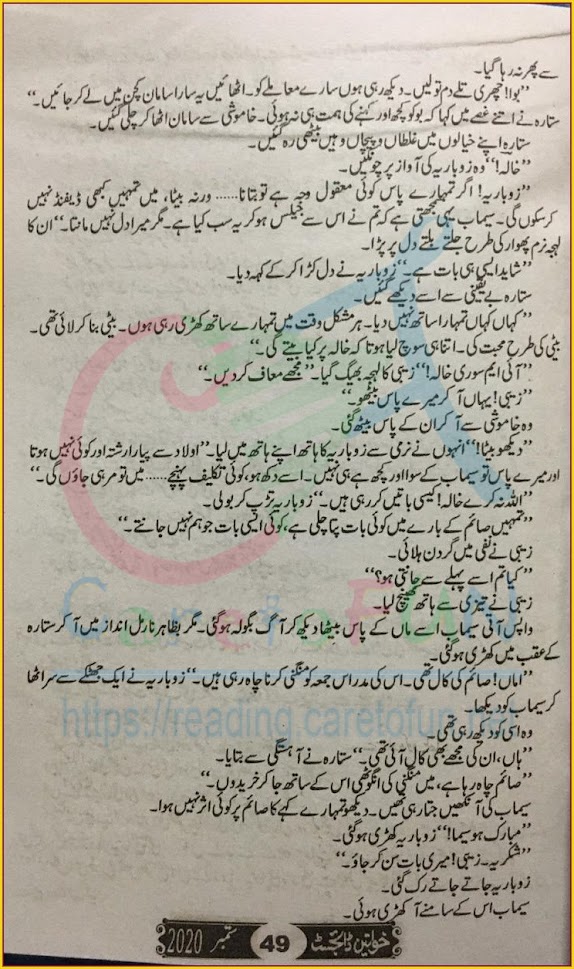 سے پھر نہ رہا گیا۔
”بوا! چھری تلے دم تو لیں۔ دیکھ رہی ہوں سارے معاملے کو۔ اٹھائیں یہ سارا سامان کچن میں لے کر جائیں۔“
ستارہ نے اتنے غصے میں کہا کہ بوا کو کچھ اور کہنے کی ہمت ہی نہ ہوئی۔ خاموشی سے سامان اٹھا کر چلی گئیں۔
ستارہ اپنے خیالوں میں غلطاں و پیچاں وہیں بیٹھی رہ گئیں۔
”خالہ!“ وہ زوباریہ کی آواز پر چونکیں۔
”زوباریہ! اگر تمہارے پاس کوئی معقول وجہ ہے تو بتانا...... ورنہ بیٹا، میں تمہیں کبھی ڈیفنڈ نہیں
کر سکوں گی۔ سیماب یہی سمجھتی ہے کہ تم نے اس سے جیلس ہو کر یہ سب کیا ہے۔ مگر میرا دل نہیں مانتا۔“ ان کا
لہجہ نرم پھوار کی طرح جلتے بلتے دل پر پڑا۔
”شاید ایسی ہی بات ہے۔“ زوباریہ نے دل کڑا کر کے کہہ دیا۔
ستارہ بے یقینی سے اسے دیکھے گئیں۔
”کہاں کہاں تمہارا ساتھ نہیں دیا۔ ہر مشکل وقت میں تمہارے ساتھ کھڑی رہی ہوں۔ بیٹی بنا کر لائی تھی۔
بیٹی کی طرح محبت کی۔ اتنا ہی سوچ لیا ہوتا کہ خالہ پر کیا بیتے گی۔“
”آئی ایم سوری خالہ!“ زیبی کا لہجہ بھیگ گیا۔ ”مجھے معاف کر دیں۔“
”زیبی! یہاں آکر میرے پاس بیٹھو۔“
وہ خاموشی سے آکر ان کے پاس بیٹھ گئی۔
”دیکھو بیٹا!“ انہوں نے نرمی سے زوباریہ کا ہاتھ اپنے ہاتھ میں لیا۔ ”اولاد سے پیارا رشتہ اور کوئی نہیں ہوتا
اور میرے پاس تو سیماب کے سوا اور کچھ ہے ہی نہیں۔ اسے دکھ ہو، کوئی تکلیف پہنچے...... میں تو مر ہی جاؤں گی۔“
”اللہ نہ کرے خالہ! کیسی باتیں کر رہی ہیں۔“ زوباریہ تڑپ کر بولی۔
”تمہیں صائم کے بارے میں کوئی بات پتا چلی ہے، کوئی ایسی بات جو ہم نہیں جانتے۔“
زیبی نے نفی میں گردن ہلائی۔
”کیا تم اسے پہلے سے جانتی ہو؟“
زیبی نے تیزی سے ہاتھ کھینچ لیا۔
واپس آتی سیماب اسے ماں کے پاس بیٹھا دیکھ کر آگ بگولہ ہو گئی۔ مگر بظاہر نارمل انداز میں آکر ستارہ
کے عقب میں کھڑی ہو گئی۔
”اماں! صائم کی کال تھی۔ اس کی مدر اس جمعہ کو منگنی کرنا چاہ رہی ہیں۔“ زوباریہ نے ایک جھٹکے سے سر اٹھا
کر سیماب کو دیکھا۔
وہ اسی کو دیکھ رہی تھی۔
”ہاں، ان کی مجھے بھی کال آئی تھی۔“ ستارہ نے آہستگی سے بتایا۔
”صائم چاہ رہا ہے، میں منگنی کی انگوٹھی اس کے ساتھ جا کر خریدوں۔“
سیماب کی آنکھیں جتا رہی تھیں۔ دیکھو تمہارے کہے کا صائم پر کوئی اثر نہیں ہوا۔
”مبارک ہو سیما!“ زوباریہ کھڑی ہو گئی۔
”شکریہ۔ زیبی! میری بات سن کر جاؤ۔“
زوباریہ جاتے جاتے رک گئی۔
سیماب اس کے سامنے آکھڑی ہوئی۔
خواتین ڈائجسٹ 49 ستمبر 2020
CaretoFUN
https://reading.caretofun.net